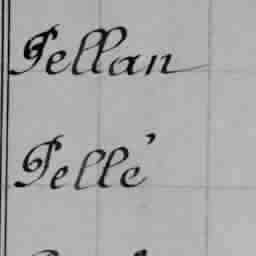 Pellan
Pellé